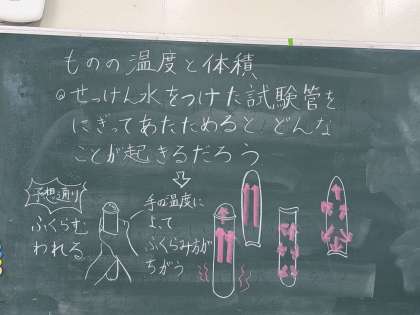 ものの温度と体積
◎せっけん水をつけた試験管を
にぎってあたためると、どんな
ことが起きるだろう
予想通り
ふくらむ
われる
手の温度に
よって
ふくらみ方が
ちがう